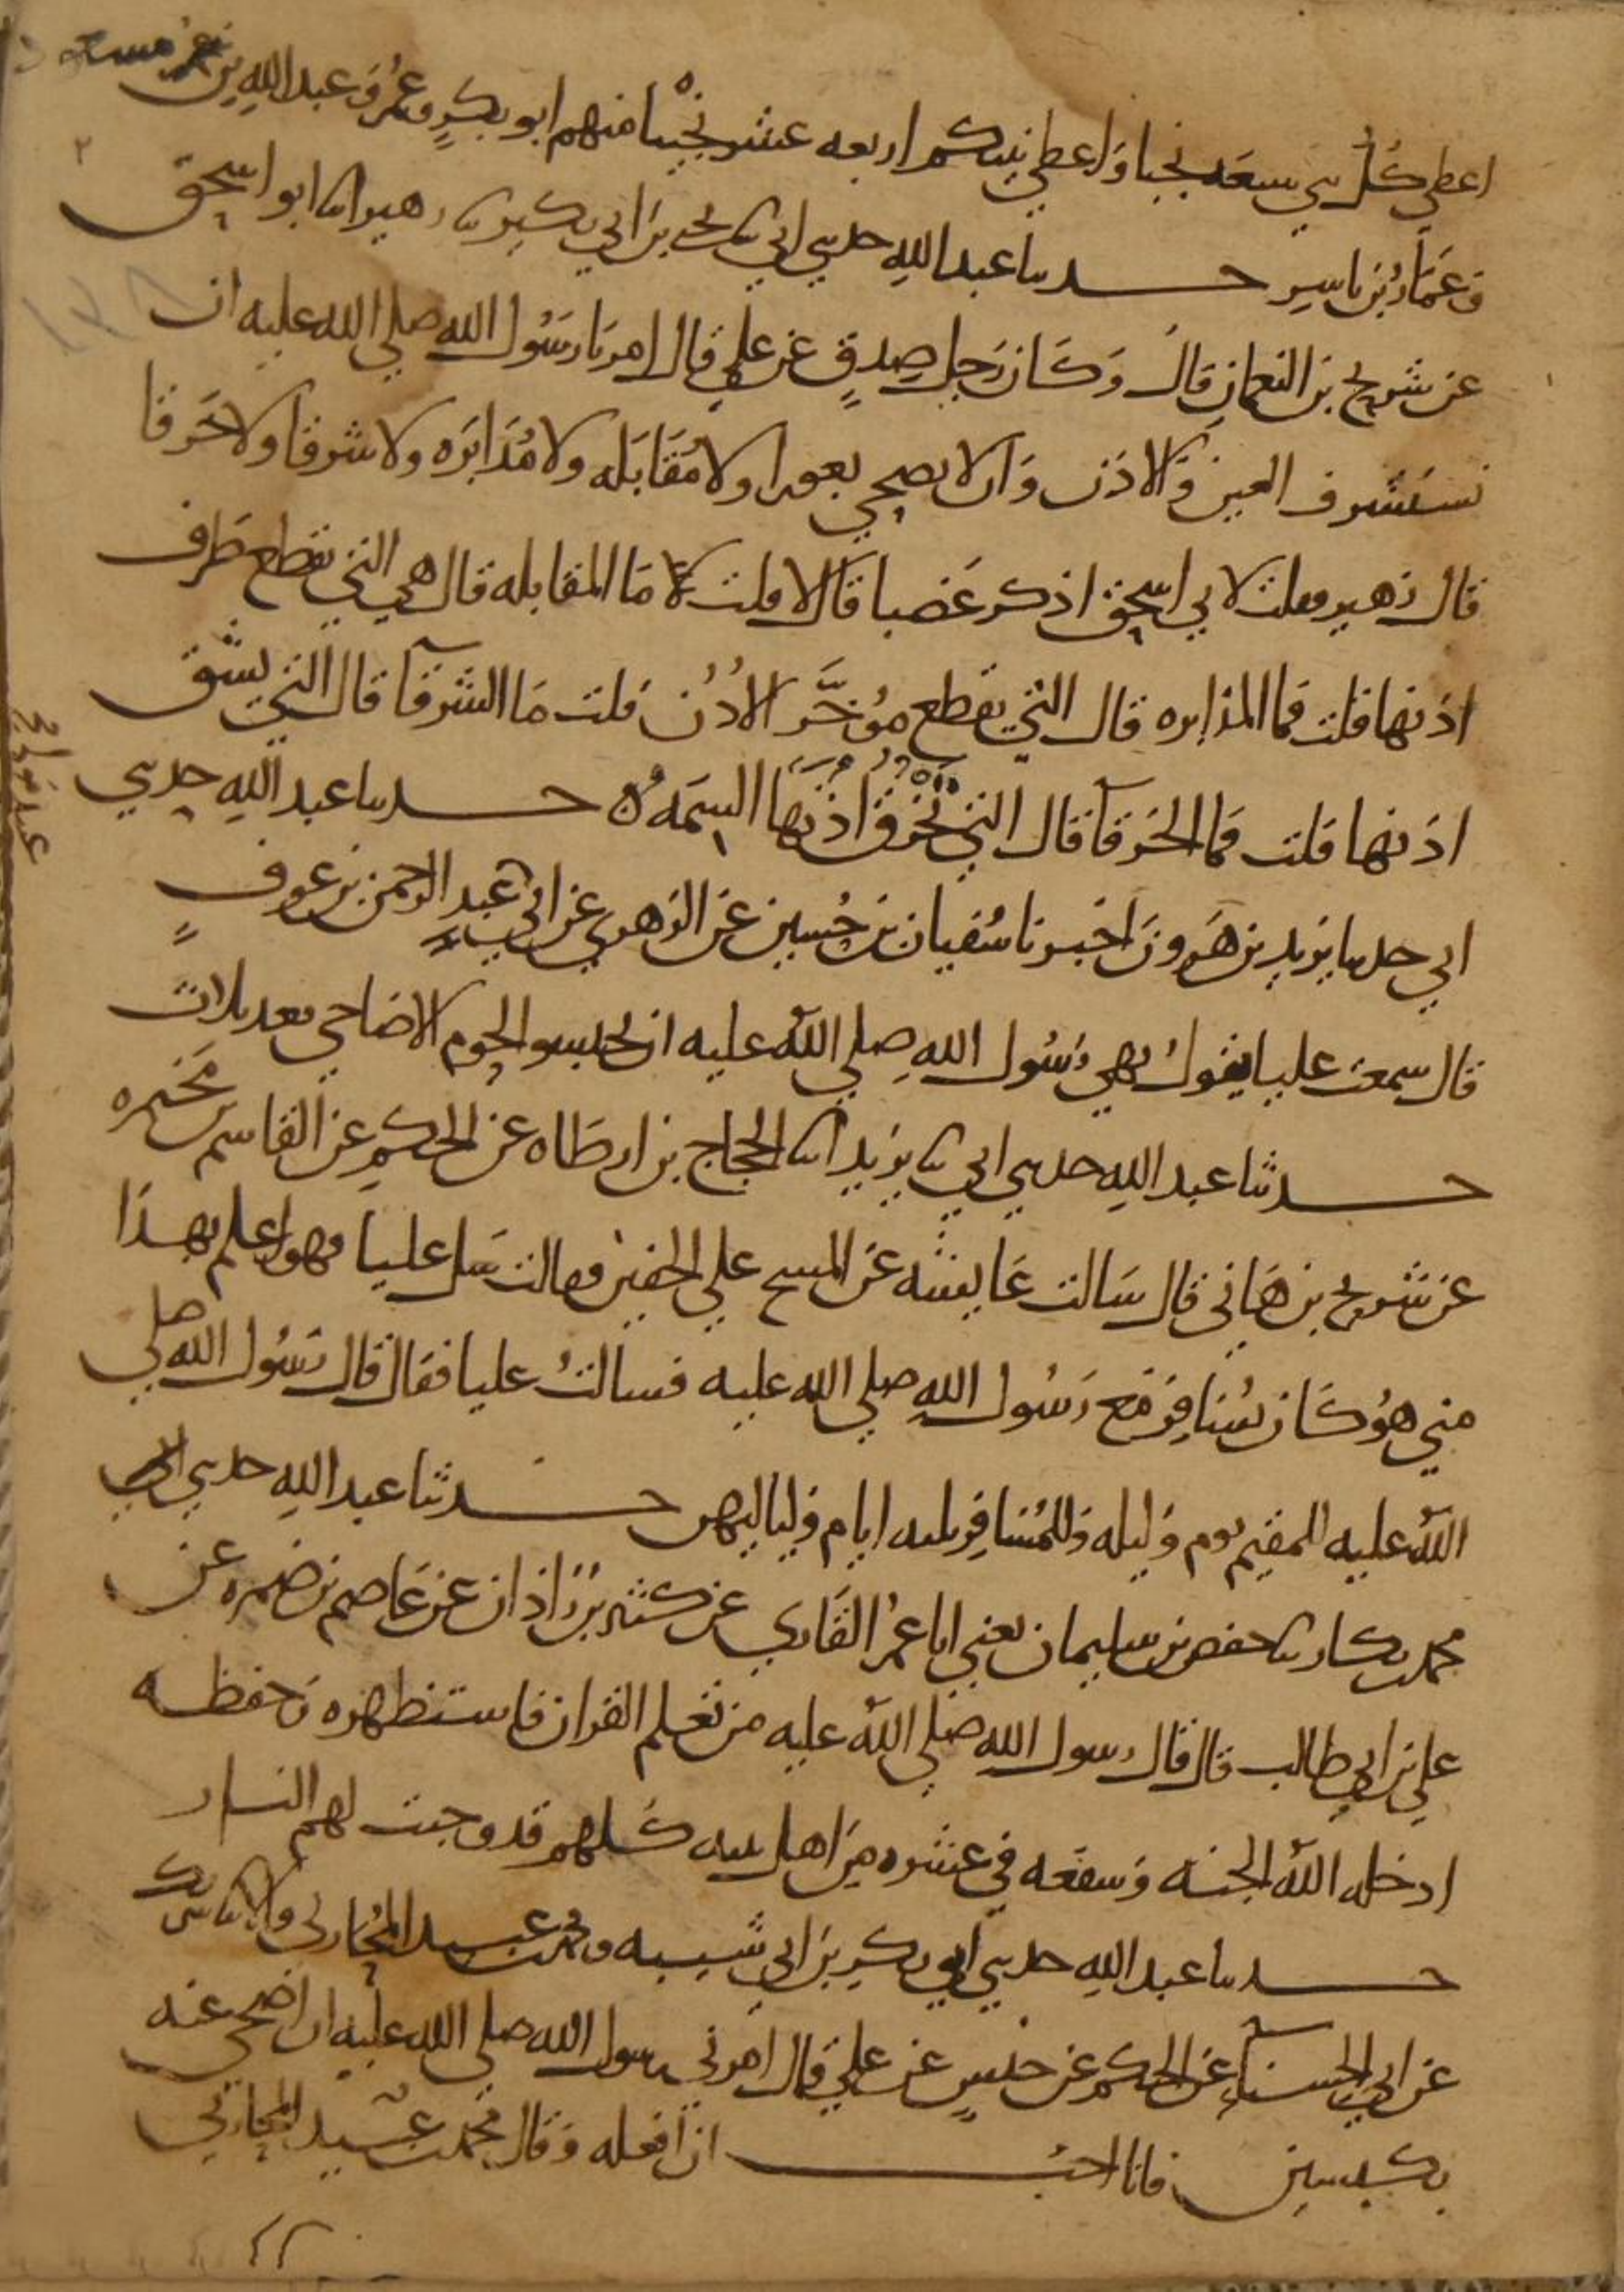 اعطي كل نبي سبعه نجبا واعطي نبيكم اربعه عشر نجيبا منهم ابو بكر وعمر وعبد الله بن مسعود
وعمار بن ياسر حدثنا عبد الله حدثني ابي ثنا يحيى بن ابي بكير ثنا زهير انا ابو اسحق
عن شريح بن النعمان قال وكان رجل صدق عن علي قال امرنا رسول الله صلي الله عليه ان
نستشرف العين والاذن وان لا نضحي بعورا ولا مقابله ولا مدابره ولا شرقا ولا خرقا
قال زهير فقلت لابي اسحق اذكر عضبا قال لا قلت ما المقابله قال هي التي يقطع طرف
اذنها قلت فما المدابره قال التي يقطع مؤخر الاذن قلت ما الشرقآ قال التي يشق
اذنها قلت فما الخرقآ قال التي تخرق اذنها السمه حدثنا عبد الله حدثني
ابي حدثنا يزيد بن هرون اخبرنا سفيان بن حسين عن الزهري عن ابي عبيد عبد الرحمن بن عوف
قال سمعت عليا يقول نهي رسول الله صلي الله عليه ان يحبسوا لحوم الاضاحي بعد ثلاث
حدثنا عبد الله حدثني ابي ثنا يزيد انا الحجاج بن ارطاه عن الحكم عن القاسم بن مخيمره
عن شريح بن هاني قال سالت عايشه عن المسح علي الخفين فقالت سل عليا فهو اعلم بهذا
مني هو كان يسافر مع رسول الله صلي الله عليه فسالت عليا فقال قال رسول الله صلي
الله عليه للمقيم يوم وليله وللمسافر ثلثه ايام ولياليهن حدثنا عبد الله حدثني
محمد بن بكار ثنا حفص بن سليمان يعني ابا عمر القاري عن كثير بن زاذان عن عاصم بن ضمره عن
علي بن ابي طالب قال قال رسول الله صلي الله عليه من تعلم القران فاستظهره وحفظه
ادخله الله الجنه وشفعه في عشره من اهل بيته كلهم قد وجبت لهم النار
حدثنا عبد الله حدثني ابو بكر بن ابي شيبه ومحمد بن عبيد المحاربي قالا ثنا شريك
عن ابي الحسنآء عن الحكم عن حنش عن علي قال امرني رسول الله صلي الله عليه ان اضحي عنه
بكبشين فانا احب ان افعله وقال محمد بن عبيد المحاربي